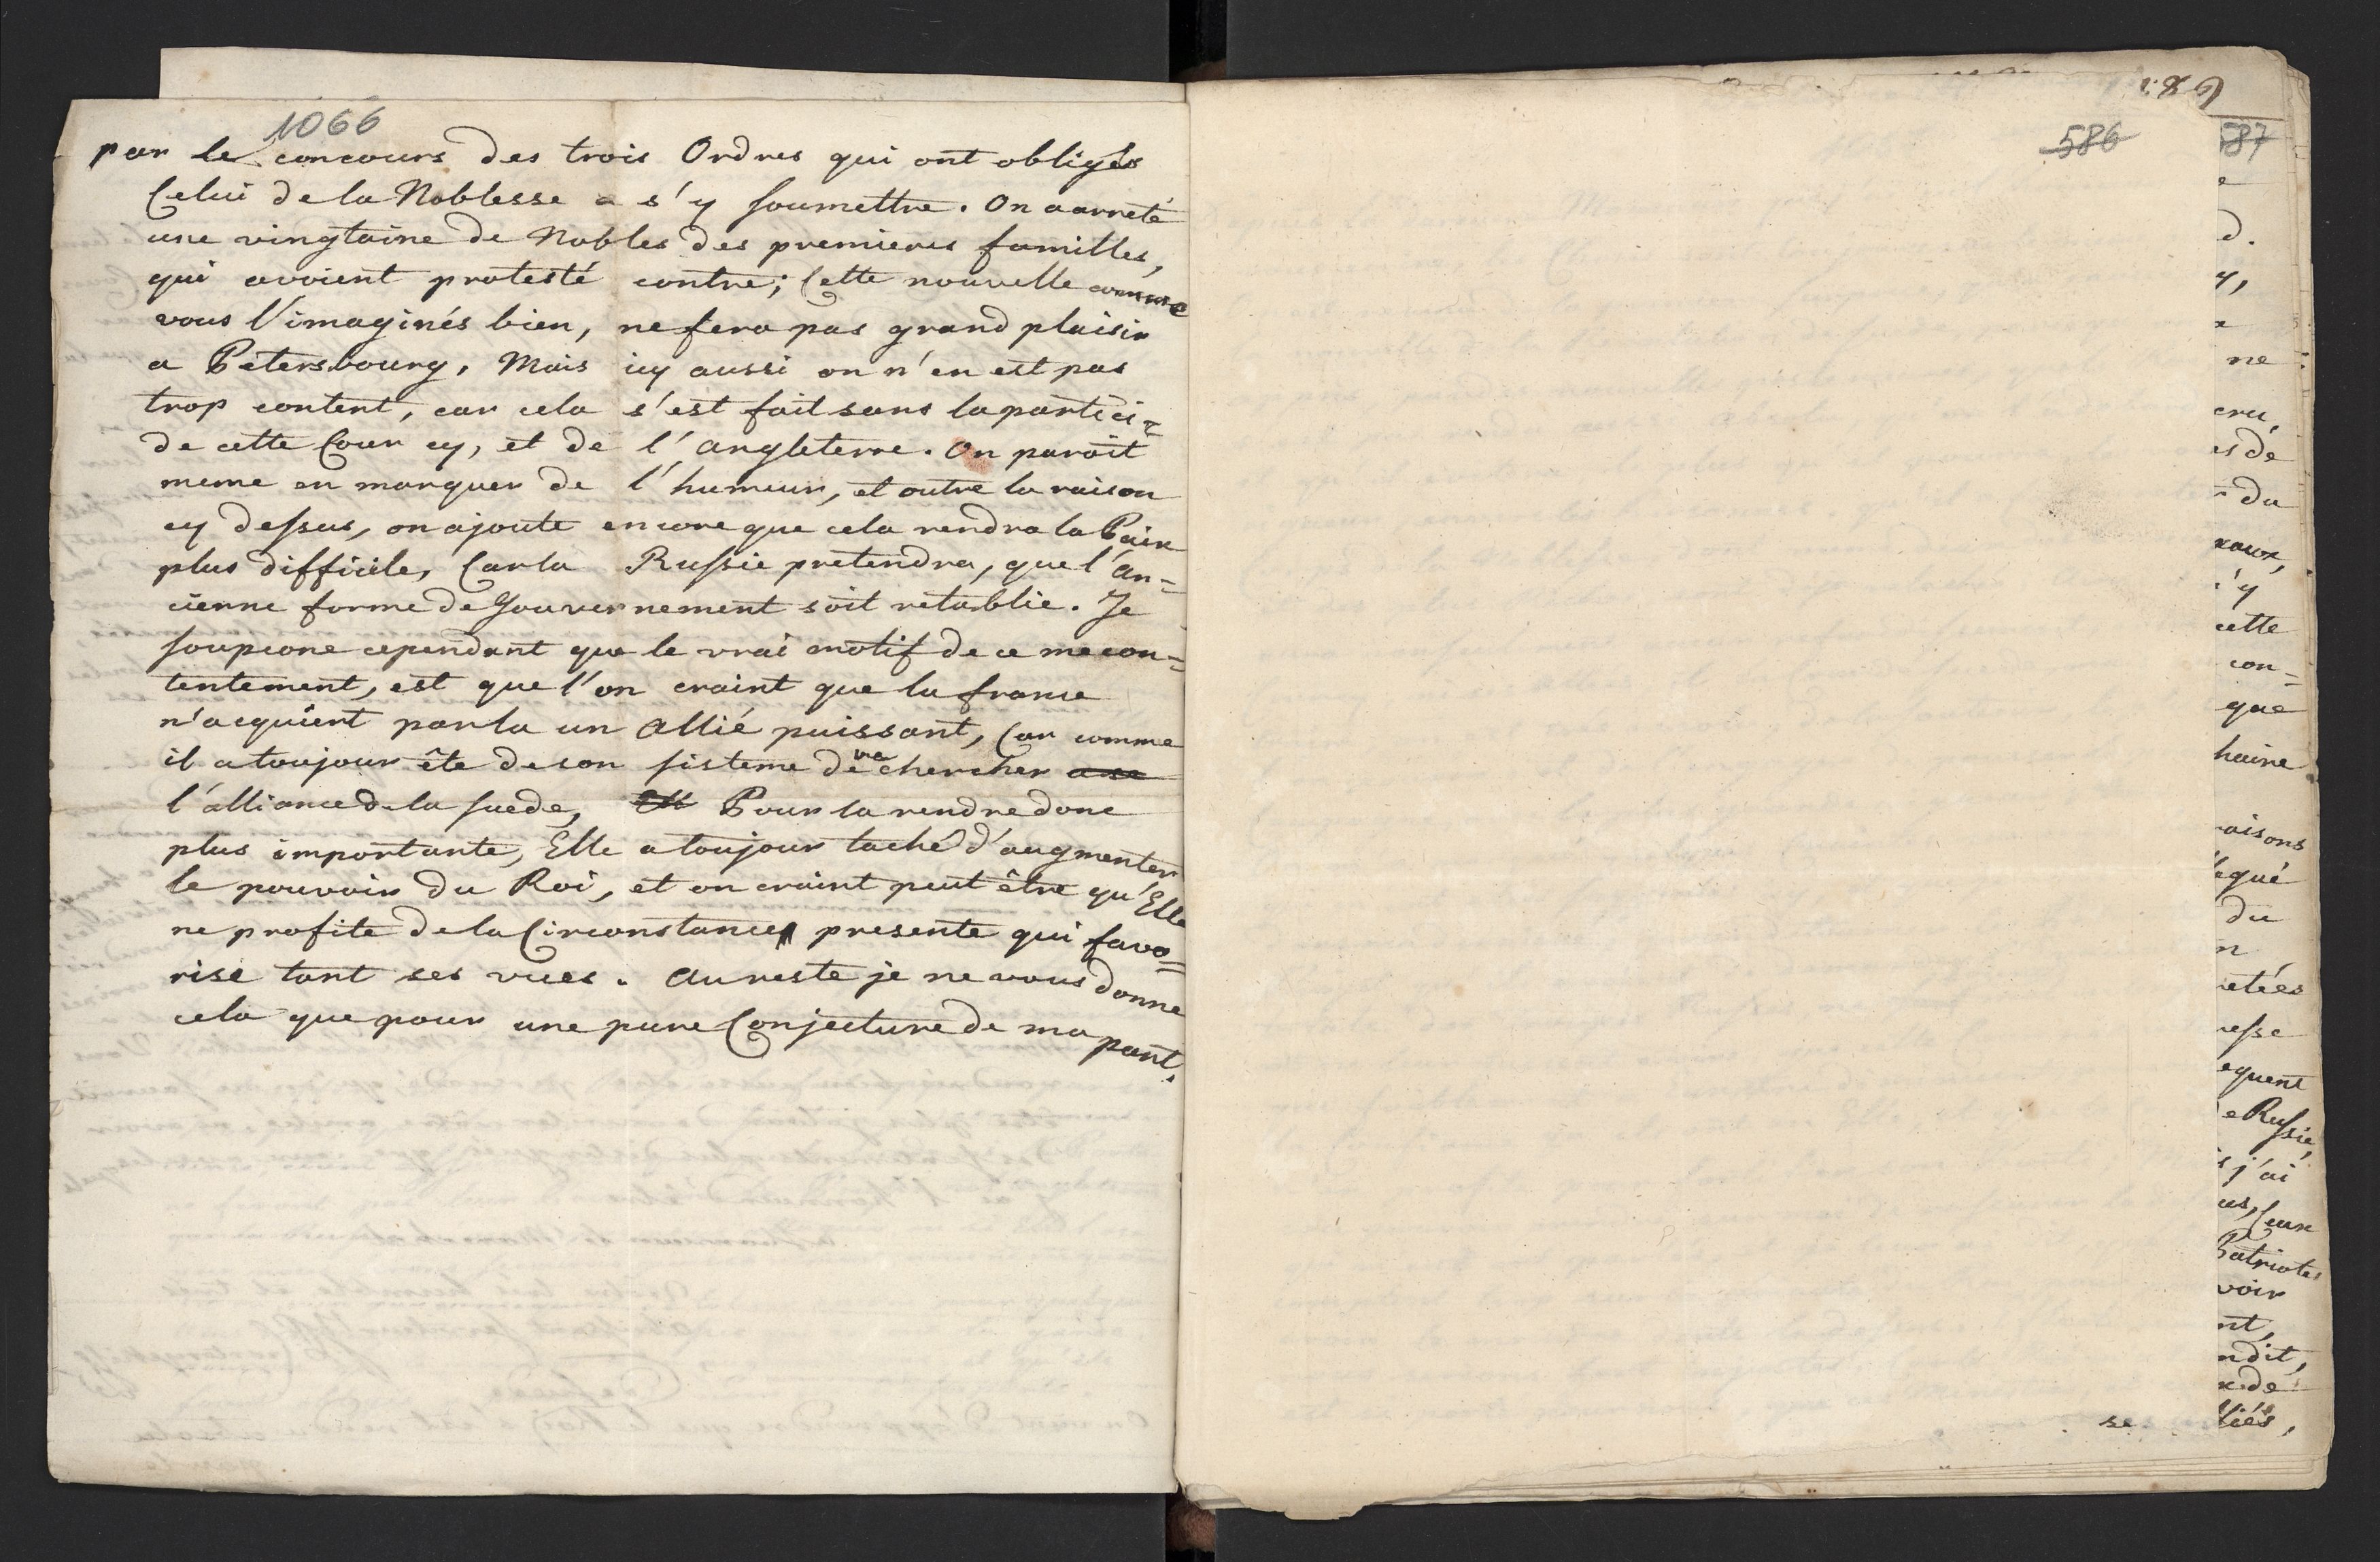 1066
par le concours des trois Ordres qui ont obligés
Celui de la Noblesse a s'y soumettre. On a arreté
une vingtaine de Nobles des premieres familles,
qui avoient protesté contre; Cette nouvelle comme
vous l'imaginés bien, ne fera pas grand plaisir
a Petersbourg, Mais icy aussi on n'en est pas
trop content, car cela s'est fait sans la partici=
de cette Cour cy, et de l'angleterre. On paroit
meme en marquer de l'humeur, et outre la raison
cy dessus, on ajoute encore que cela rendra la Paix
plus difficile, Car la Russie pretendra, que l'an=
cienne forme de Gouvernement soit retablie. Je
soupcone cependant que le vrai motif de ce mecon=
tentement, est que l'on craint que la france
n'acquient par la un Allié puissant, Car comme
il a toujour ête de son sisteme de rechercher
l'alliance de la suede, Pour la rendre donc
plus importante, Elle a toujour taché d'augmenter
le pouvoir du Roi, et on craint peut être qu'Elle
ne profite de la Circonstance presente qui favo=
rise tant ses vues. Au reste je ne vous donne
cela que pour une pure Conjecture de ma part.
586
se
587
e
d.
y,
ne
cru,
es de
du
xaux,
'y
cette
con=
que
haine
raisons
du
n
retées
resse
equent
e Russie,
j'ai
us, Ceux
Patriotes
voir
nt,
ndit,
x de
liés,